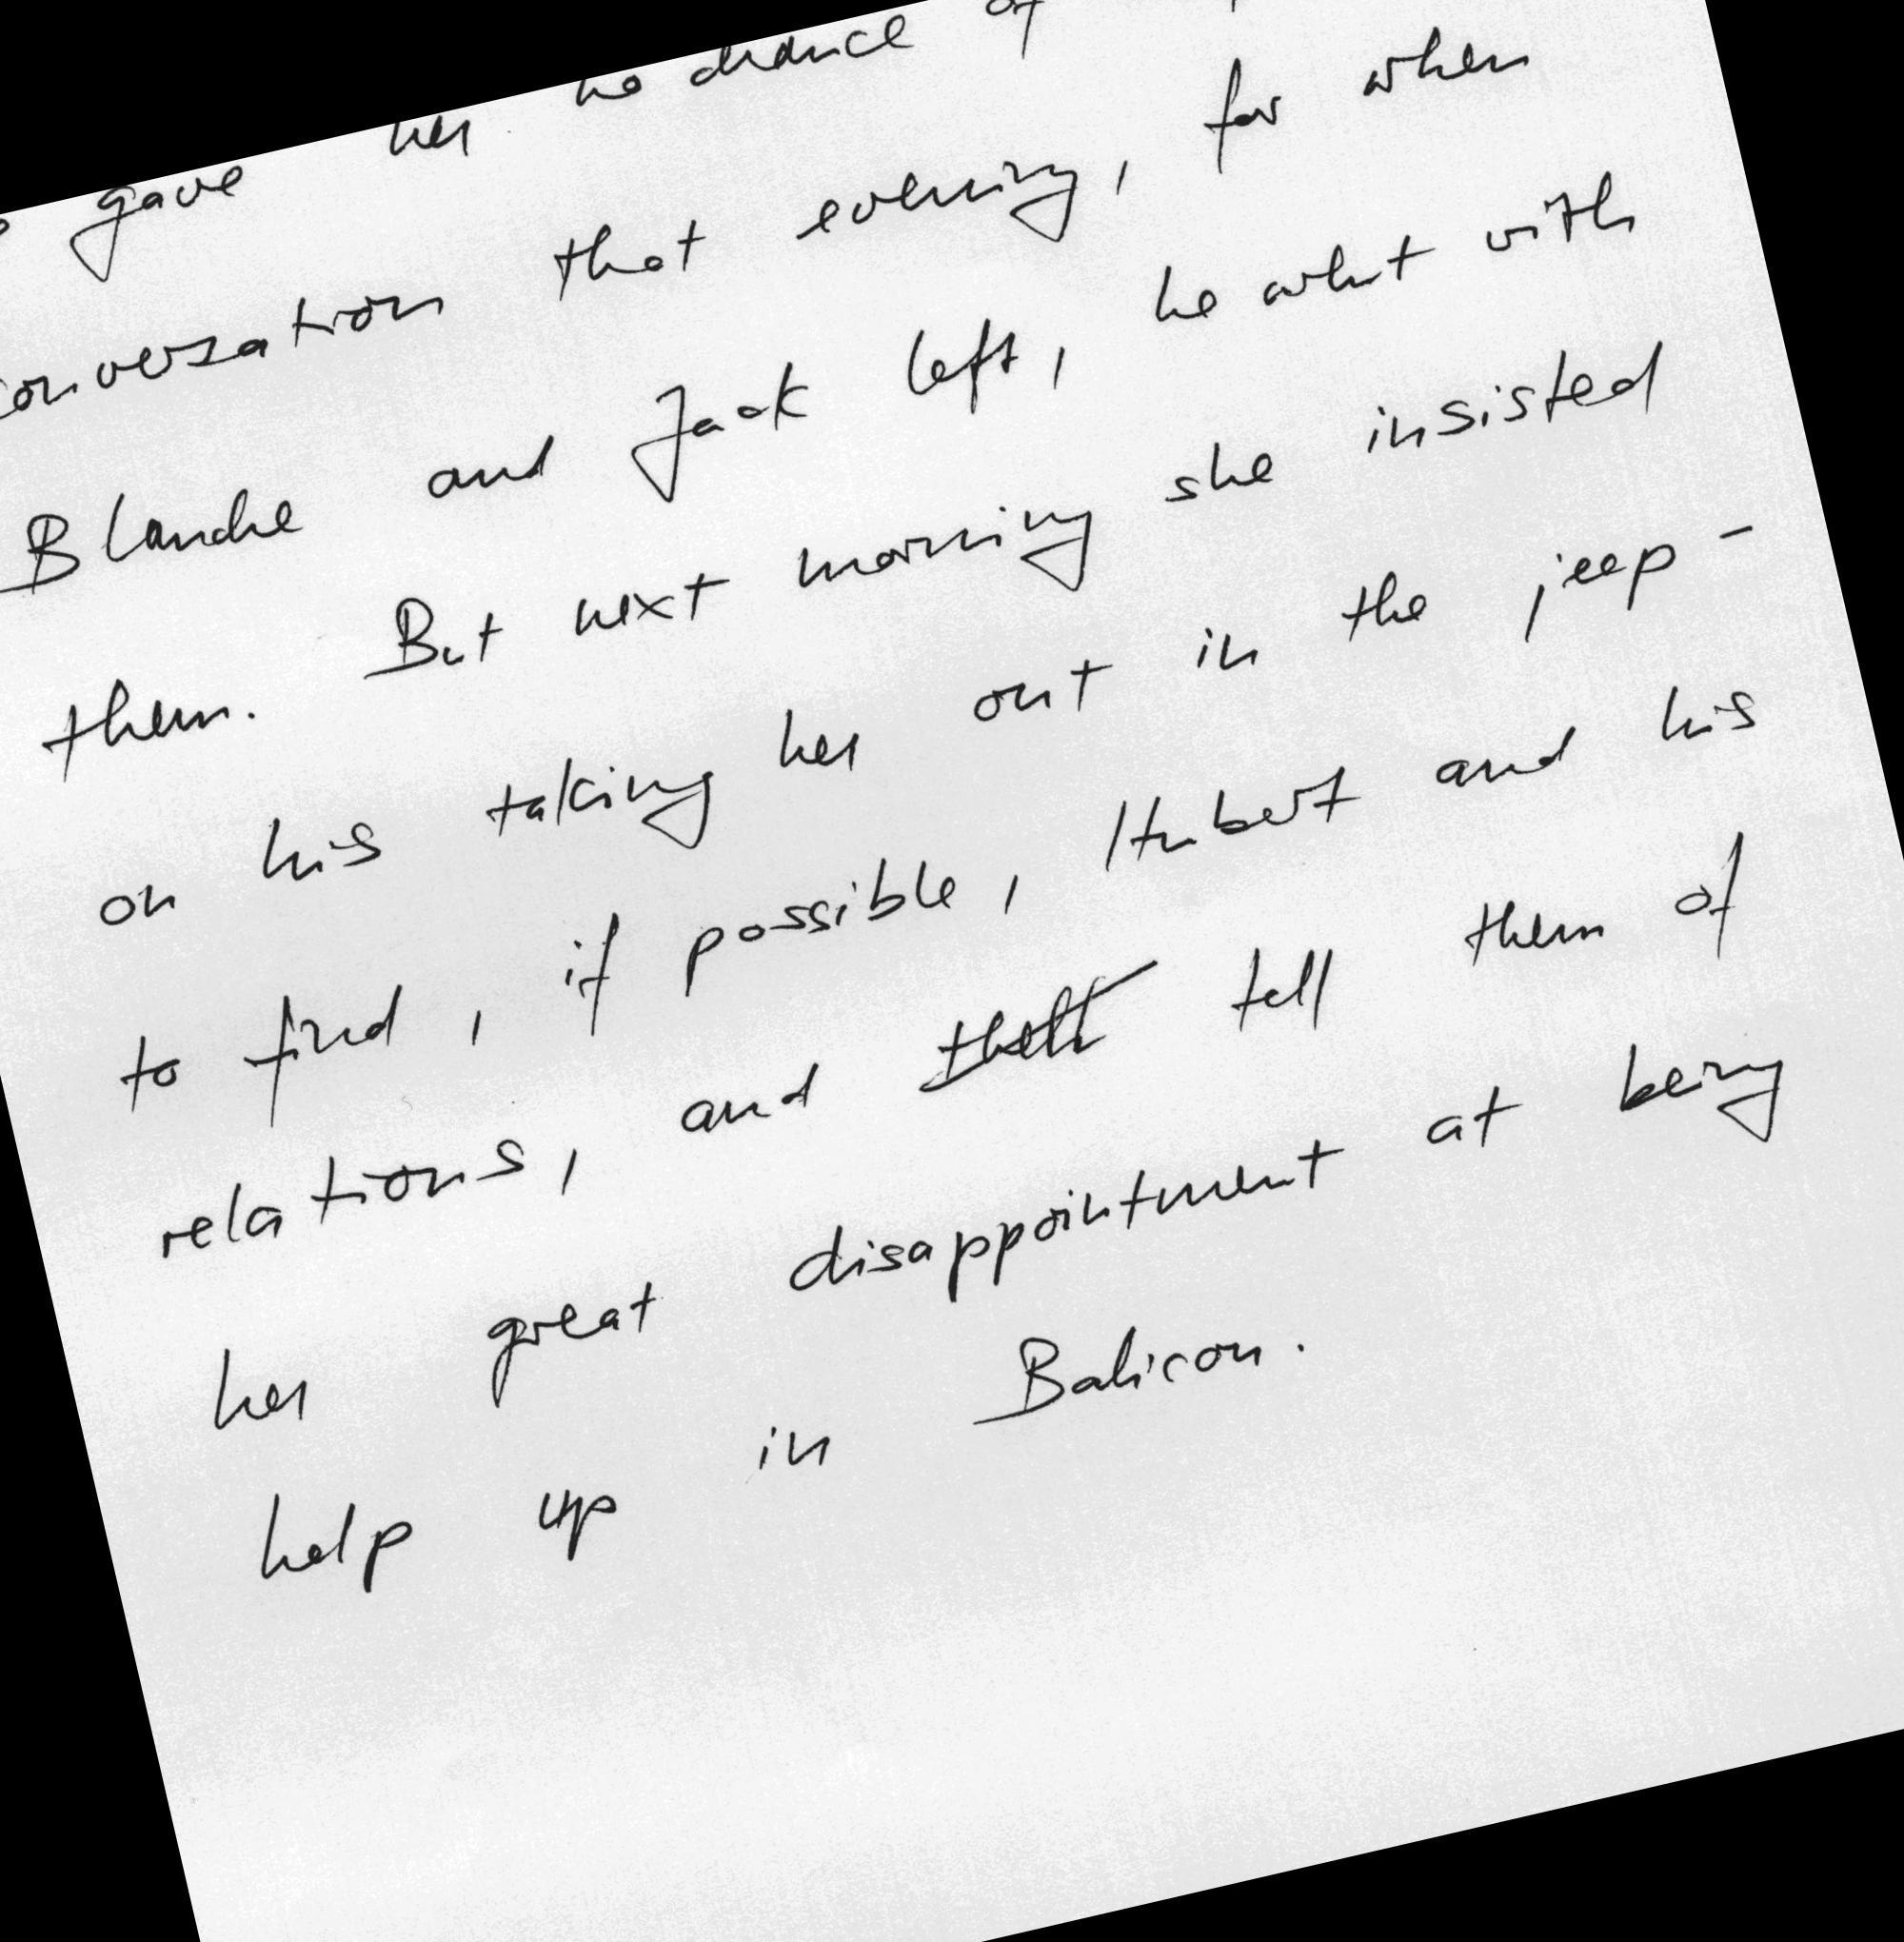 gave her no chance of
conversation that evening, for when
Blanche and Jack left, he went with
them. But next morning she insisted
on his taking her out in the jeep -
to find, if possible, Hubert and his
relations, and tell them of
her great disappointment at being
help up in Balicon.